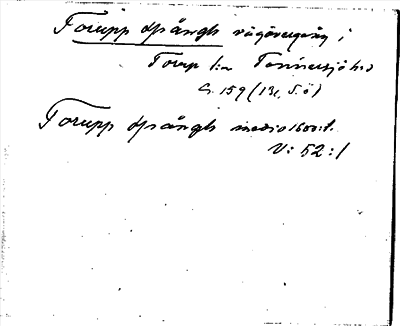 Torupp spångh vägövergång i
Torup sn Tönnersjö hd
G. 159 (13c, S.ö)
Torupp spångh medio 1600:t.
V: 52: 1